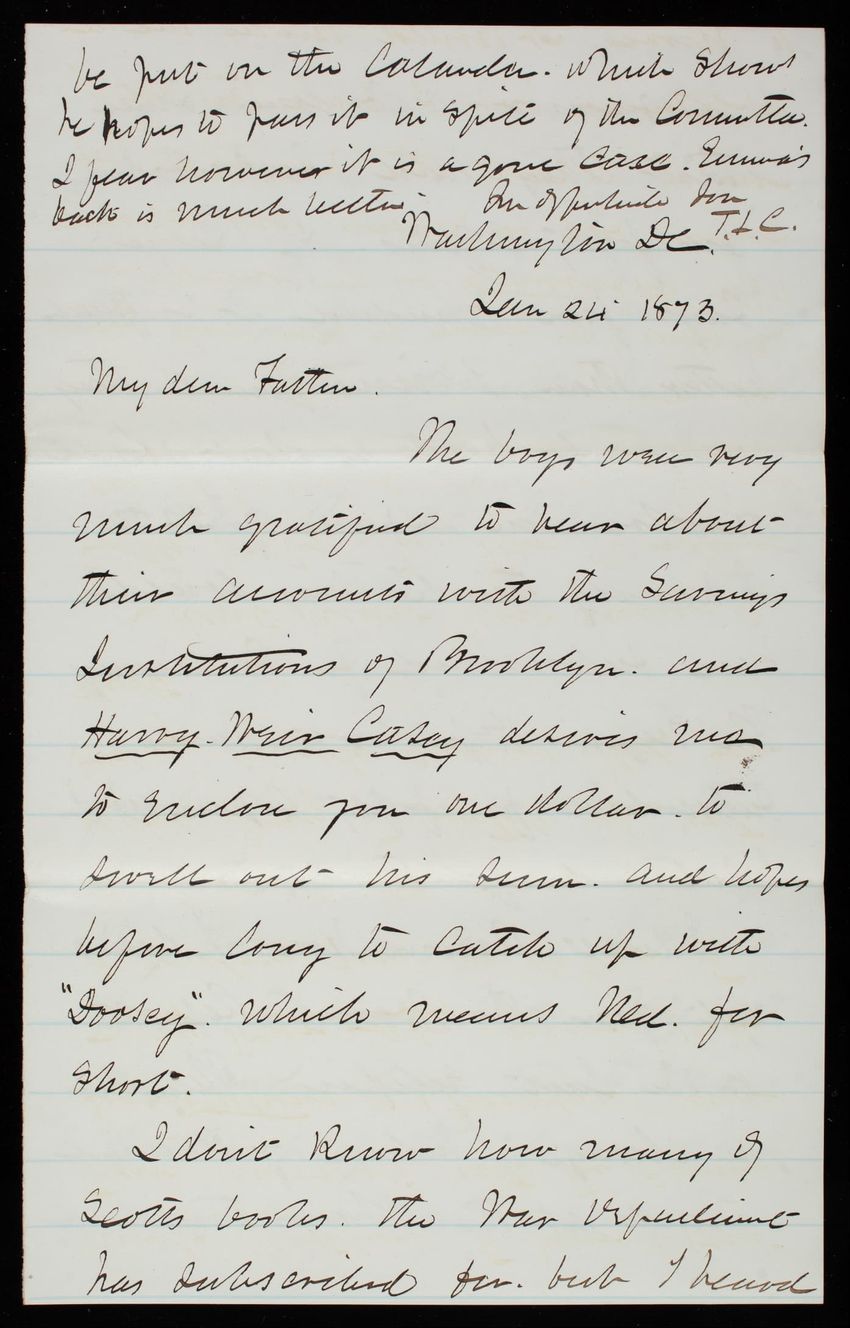 be put on the Calander. which shows
he hopes to pass it in spite of the Committee.
I fear however it is a gone case. Emma's
back is much better. Yr affectionate Son
T.L.C.
Washington DC.
Jan 24 1873.
My dear Father.
The boys were very
much gratified to hear about
their accounts with the Savings
Institutions of Brooklyn. and
Harry. Weir Casey desires me
to enclose you one dollar. to
swell out his sum. and hopes
before long to catch up with
"Doosey". which means Ned. for
short.
I don't know how many of
Scotts books. the War Department
has subscribed for. but I heard